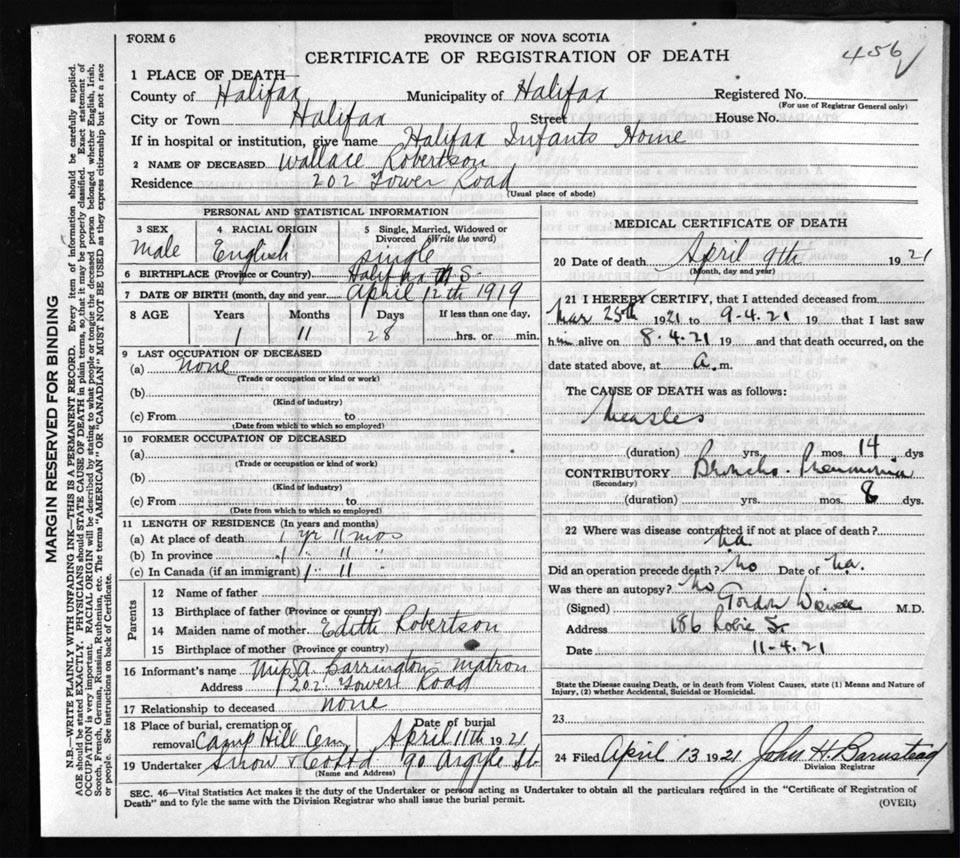 FORM 6
PROVINCE OF NOVA SCOTIA
CERTIFICATE OF REGISTRATION OF DEATH
456
1 PLACE OF DEATH—
County of Halifax Municipality of Halifax Registered No.
(For use of Registrar General only)
City or Town Halifax Street House No.
If in hospital or institution, give name Halifax Infants Home
2 NAME OF DECEASED Wallace Robertson
Residence 202 Tower Road
(Usual place of abode)
PERSONAL AND STATISTICAL INFORMATION
3 SEX 4 RACIAL ORIGIN 5 Single, Married, Widowed or Divorced (Write the word)
Male English Single
6 BIRTHPLACE (Province or Country) Halifax N S
7 DATE OF BIRTH (month, day and year) April 12th 1919
8 AGE Years Months Days If less than one day,
1 11 28 hrs. or min.
9 LAST OCCUPATION OF DECEASED
(a) none
(Trade or occupation or kind or work)
(b)
(Kind of industry)
(c) From to
(Date from which to which so employed)
10 FORMER OCCUPATION OF DECEASED
(a)
(Trade or occupation or kind or work)
(b)
(Kind of industry)
(c) From to
(Date from which to which so employed)
11 LENGTH OF RESIDENCE (In years and months)
(a) At place of death 1 yr 11 mos
(b) In province 1 " 11 "
(c) In Canada (if an immigrant) 1 " 11 "
Parents
12 Name of father
13 Birthplace of father (Province or country)
14 Maiden name of mother Edith Robertson
15 Birthplace of mother (Province or country)
16 Informant's name Miss A. Barrington - matron
Address 202 Tower Road
17 Relationship to deceased none
18 Place of burial, cremation or Date of burial
removal Camp Hill Cem April 11th 1921
19 Undertaker Snow & 90 Argyle St
(Name and Address)
MEDICAL CERTIFICATE OF DEATH
20 Date of death April 9th 1921
(Month, day and year)
21 I HEREBY CERTIFY, that I attended deceased from
Mar 25th 1921 to 9-4-21 19 that I last saw
him alive on 8.4.21 19 and that death occurred, on the
date stated above, at a.m.
The CAUSE OF DEATH was as follows:
Measles
(duration) yrs. mos. 14 dys
CONTRIBUTORY Broncho-Pneumonia
(Secondary)
(duration) yrs. mos. 8 dys.
22 Where was disease contracted if not at place of death?
na.
Did an operation precede death? no Date of na.
Was there an autopsy? no
(Signed) Gordon M.D.
Address 186 Robie St
Date 11-4-21
State the Disease causing Death, or in death from Violent Causes, state (1) Means and Nature of
Injury, (2) whether Accidental, Suicidal or Homicidal.
23
24 Filed April 13 1921 John H. Barnstead
Division Registrar
SEC. 46—Vital Statistics Act makes it the duty of the Undertaker or person acting as Undertaker to obtain all the particulars required in the "Certificate of Registration of
Death" and to fyle the same with the Division Registrar who shall issue the burial permit.
(OVER)
MARGIN RESERVED FOR BINDING
N.B.—WRITE PLAINLY WITH UNFADING INK—THIS IS A PERMANENT RECORD. Every item of information should be carefully supplied.
AGE should be stated EXACTLY. PHYSICIANS should STATE CAUSE OF DEATH in plain terms, so that it may be properly classified. Exact statement of
OCCUPATION is very important. RACIAL ORIGIN will be described by stating to what people or tongue the deceased person belonged whether English, Irish,
Scotch, French, German, Russian, Ruthenian, etc. The terms "AMERICAN" OR "CANADIAN" MUST NOT BE USED as they express citizenship but not a race
or people. See instructions on back of Certificate.